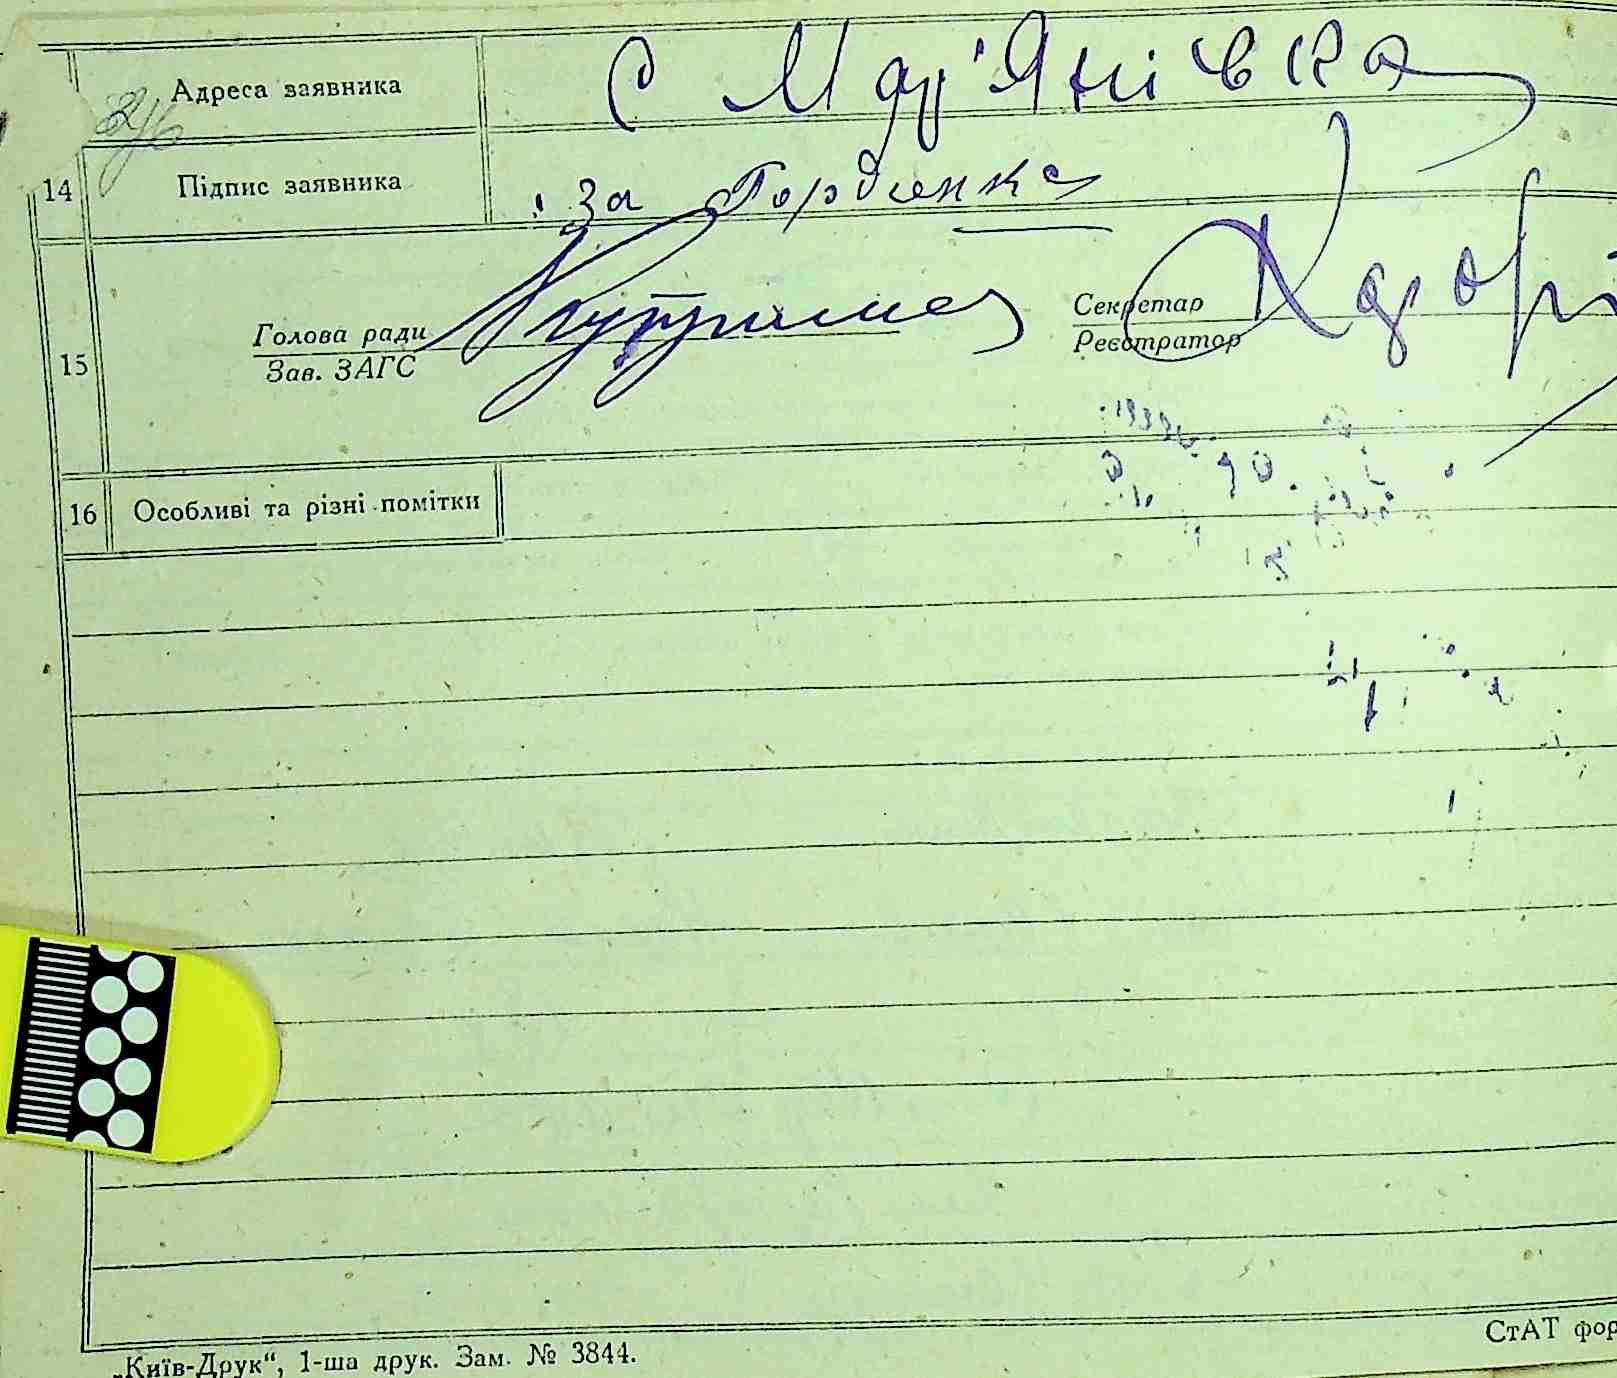 Адреса заявника С Мар'Янівка
14 Підпис заявника За Гордієнка
15 Голова ради Секретар
Зав. ЗАГС Реєстратор
16 Особливі та різні помітки
„Київ-Друк“, 1-ша друк. Зам. № 3844. СтАТ фор